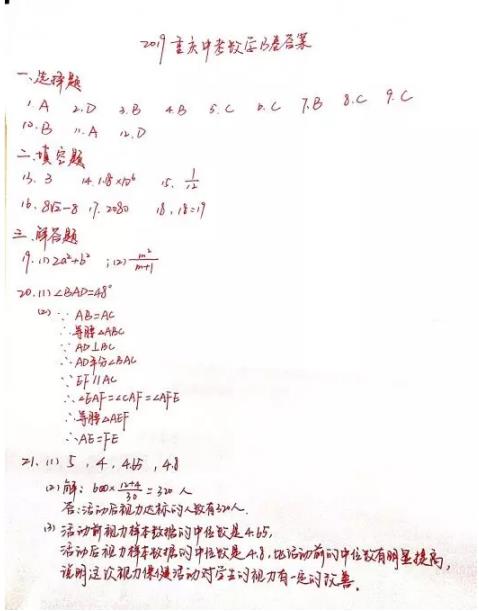 2019重庆中考数学B卷答案
一、选择题
1.A 2.D 3.B 4.B 5.C 6.C 7.B 8.C 9.C
10.B 11.A 12.D
二、填空题
13. 3 14. 1.18×10⁶ 15. 1/12
16. 8√2-8 17. 2080 18. 18:19
三、解答题
19. (1) 2a²+b² ; (2) m²/(m+1)
20. (1) ∠BAD=48°
(2) ∵ AB=AC
∴等腰△ABC
∵AD⊥BC
∴AD平分∠BAC
∵EF∥AC
∴∠EAF=∠CAF=∠AFE
∴等腰△AEF
∴AE=FE
21. (1) 5 , 4 , 4.65 , 4.8
(2) 解: 600×(12+4)/30=320人
答:活动后视力达标的人数有320人.
(3) 活动前视力样本数据的中位数是4.65,
活动后视力样本数据的中位数是4.8,比活动前的中位数有明显提高,
说明这次视力保健活动对学生的视力有一定的改善.